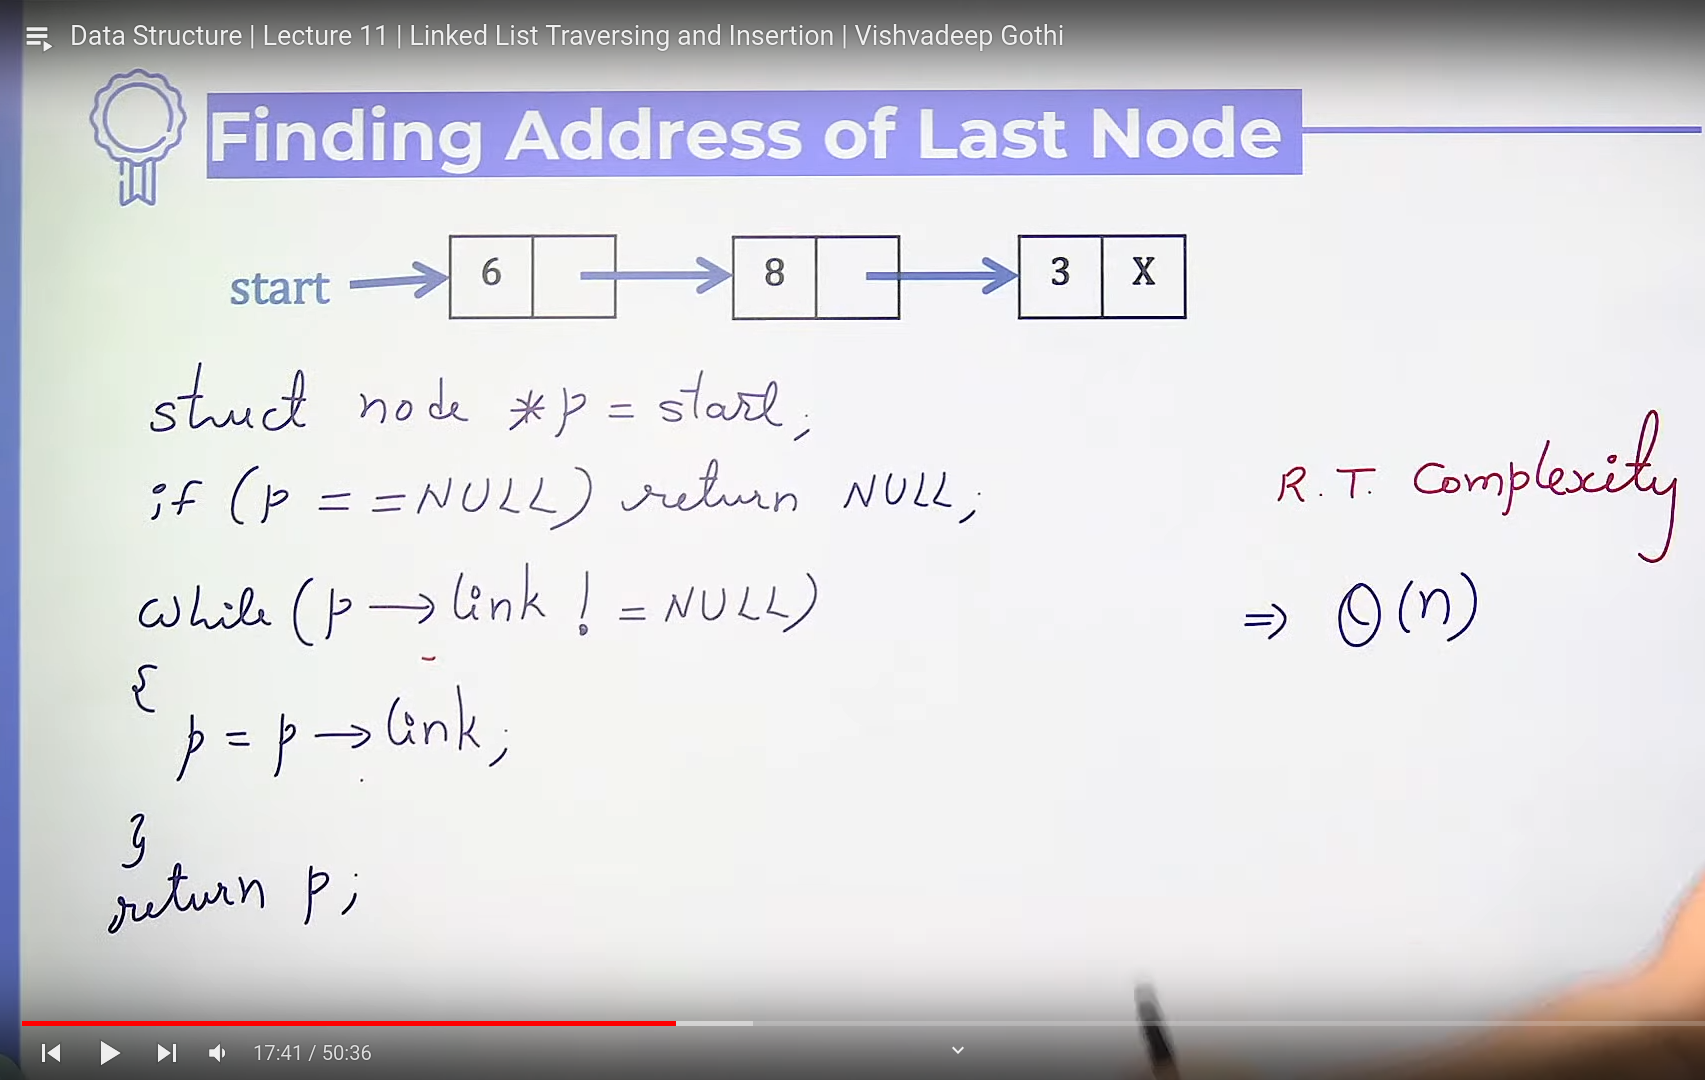 Data Structure | Lecture 11 | Linked List Traversing and Insertion | Vishvadeep Gothi
Finding Address of Last Node
start 6 8 3 X
struct node *p = start;
if (p == NULL) return NULL;
while (p → link != NULL)
{
p = p → link;
}
return p;
R. T. Complexity
⇒ Θ(n)
17:41 / 50:36